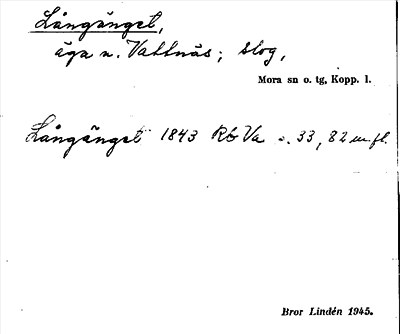 Långänget,
äga n. Vattnäs; skog,
Mora sn o. tg, Kopp. l.
Långänget 1843 Rb Va s. 33, 82 m fl.
Bror Lindén 1945.